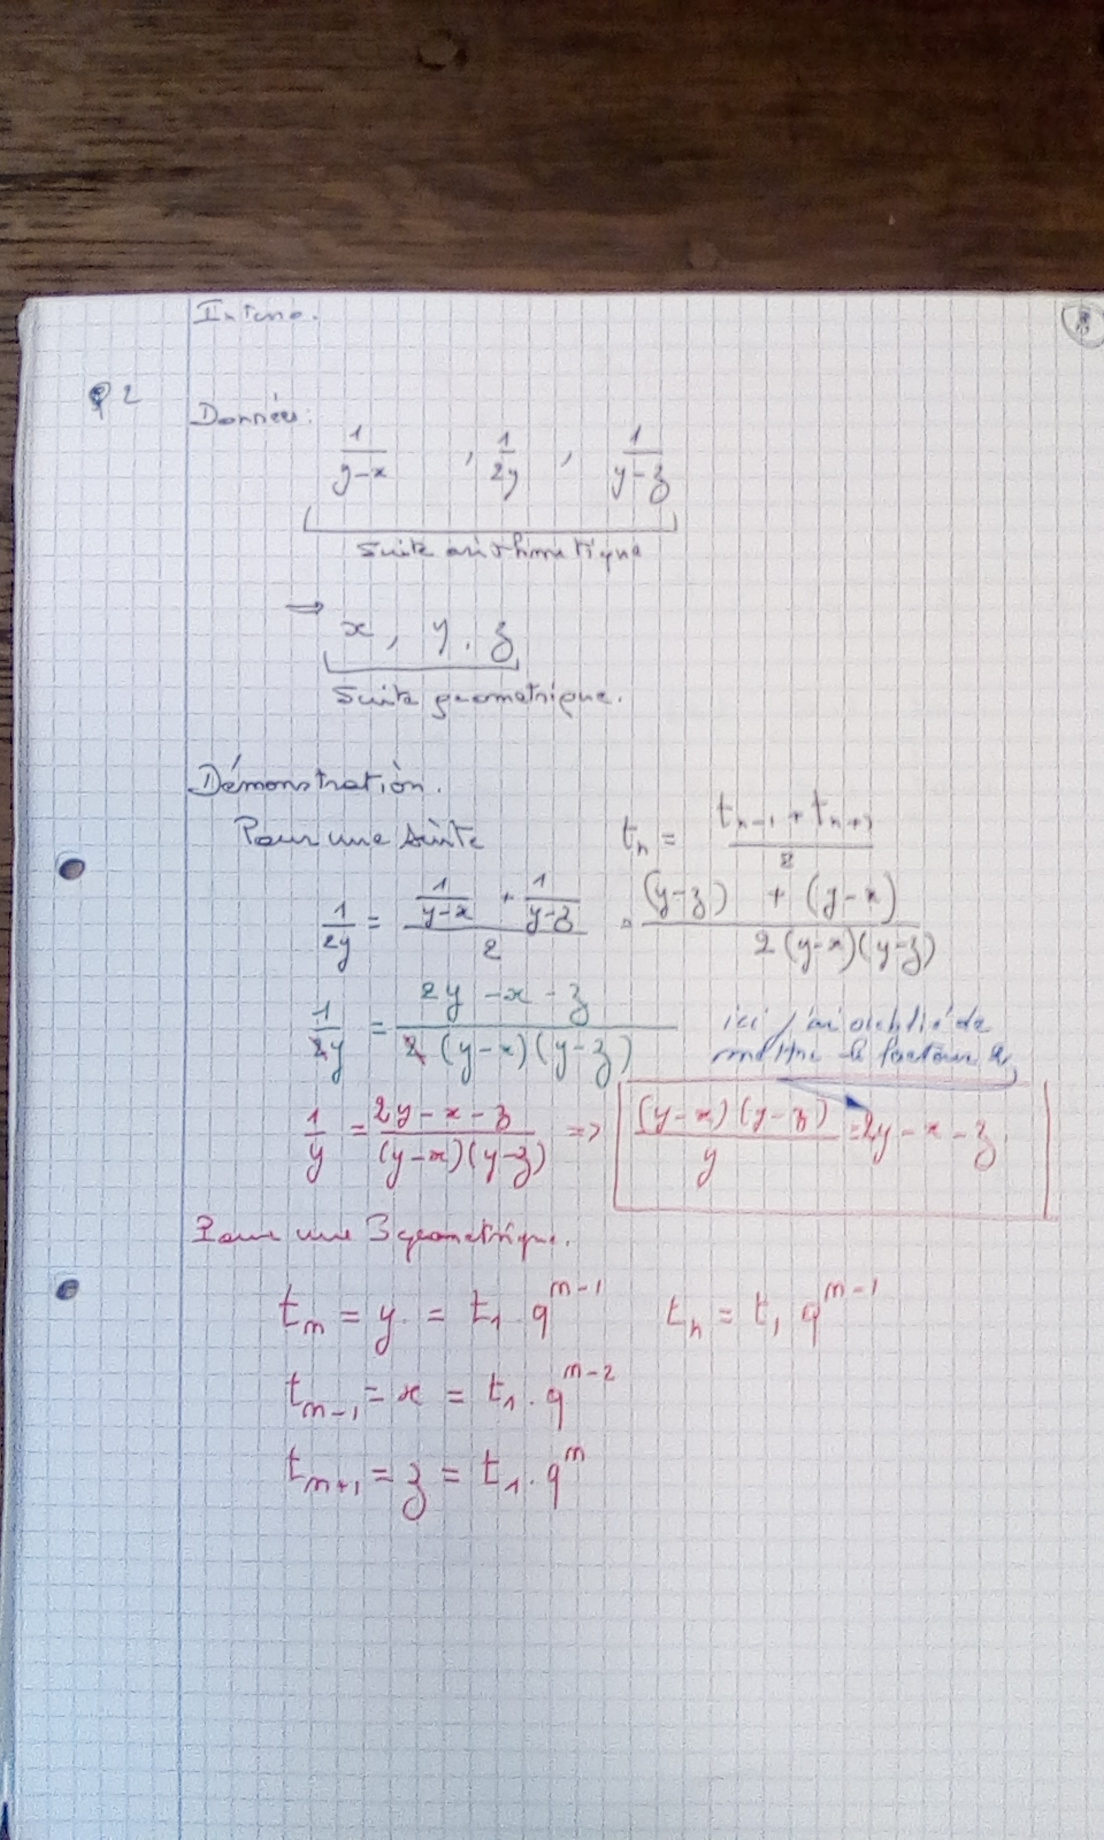 Interro.
Q 2
Données:
1/(y-x) , 1/(2y) , 1/(y-z)
Suite arithmétique
⇒ x, y, z
Suite géométrique.
Démonstration.
Pour une suite t_n = (t_{n-1} + t_{n+1})/2
1/(2y) = (1/(y-x) + 1/(y-z))/2 = ((y-z) + (y-x))/(2(y-x)(y-z))
1/(2y) = (2y-x-z)/(2(y-x)(y-z)) ici j'ai oublié de
mettre le facteur 2
1/y = (2y-x-z)/((y-x)(y-z)) => (y-x)(y-z)/y = 2y-x-z
Pour une S géométrique.
t_n = y = t_1 . q^{n-1} t_n = t_1 q^{n-1}
t_{n-1} = x = t_1 . q^{n-2}
t_{n+1} = z = t_1 . q^n